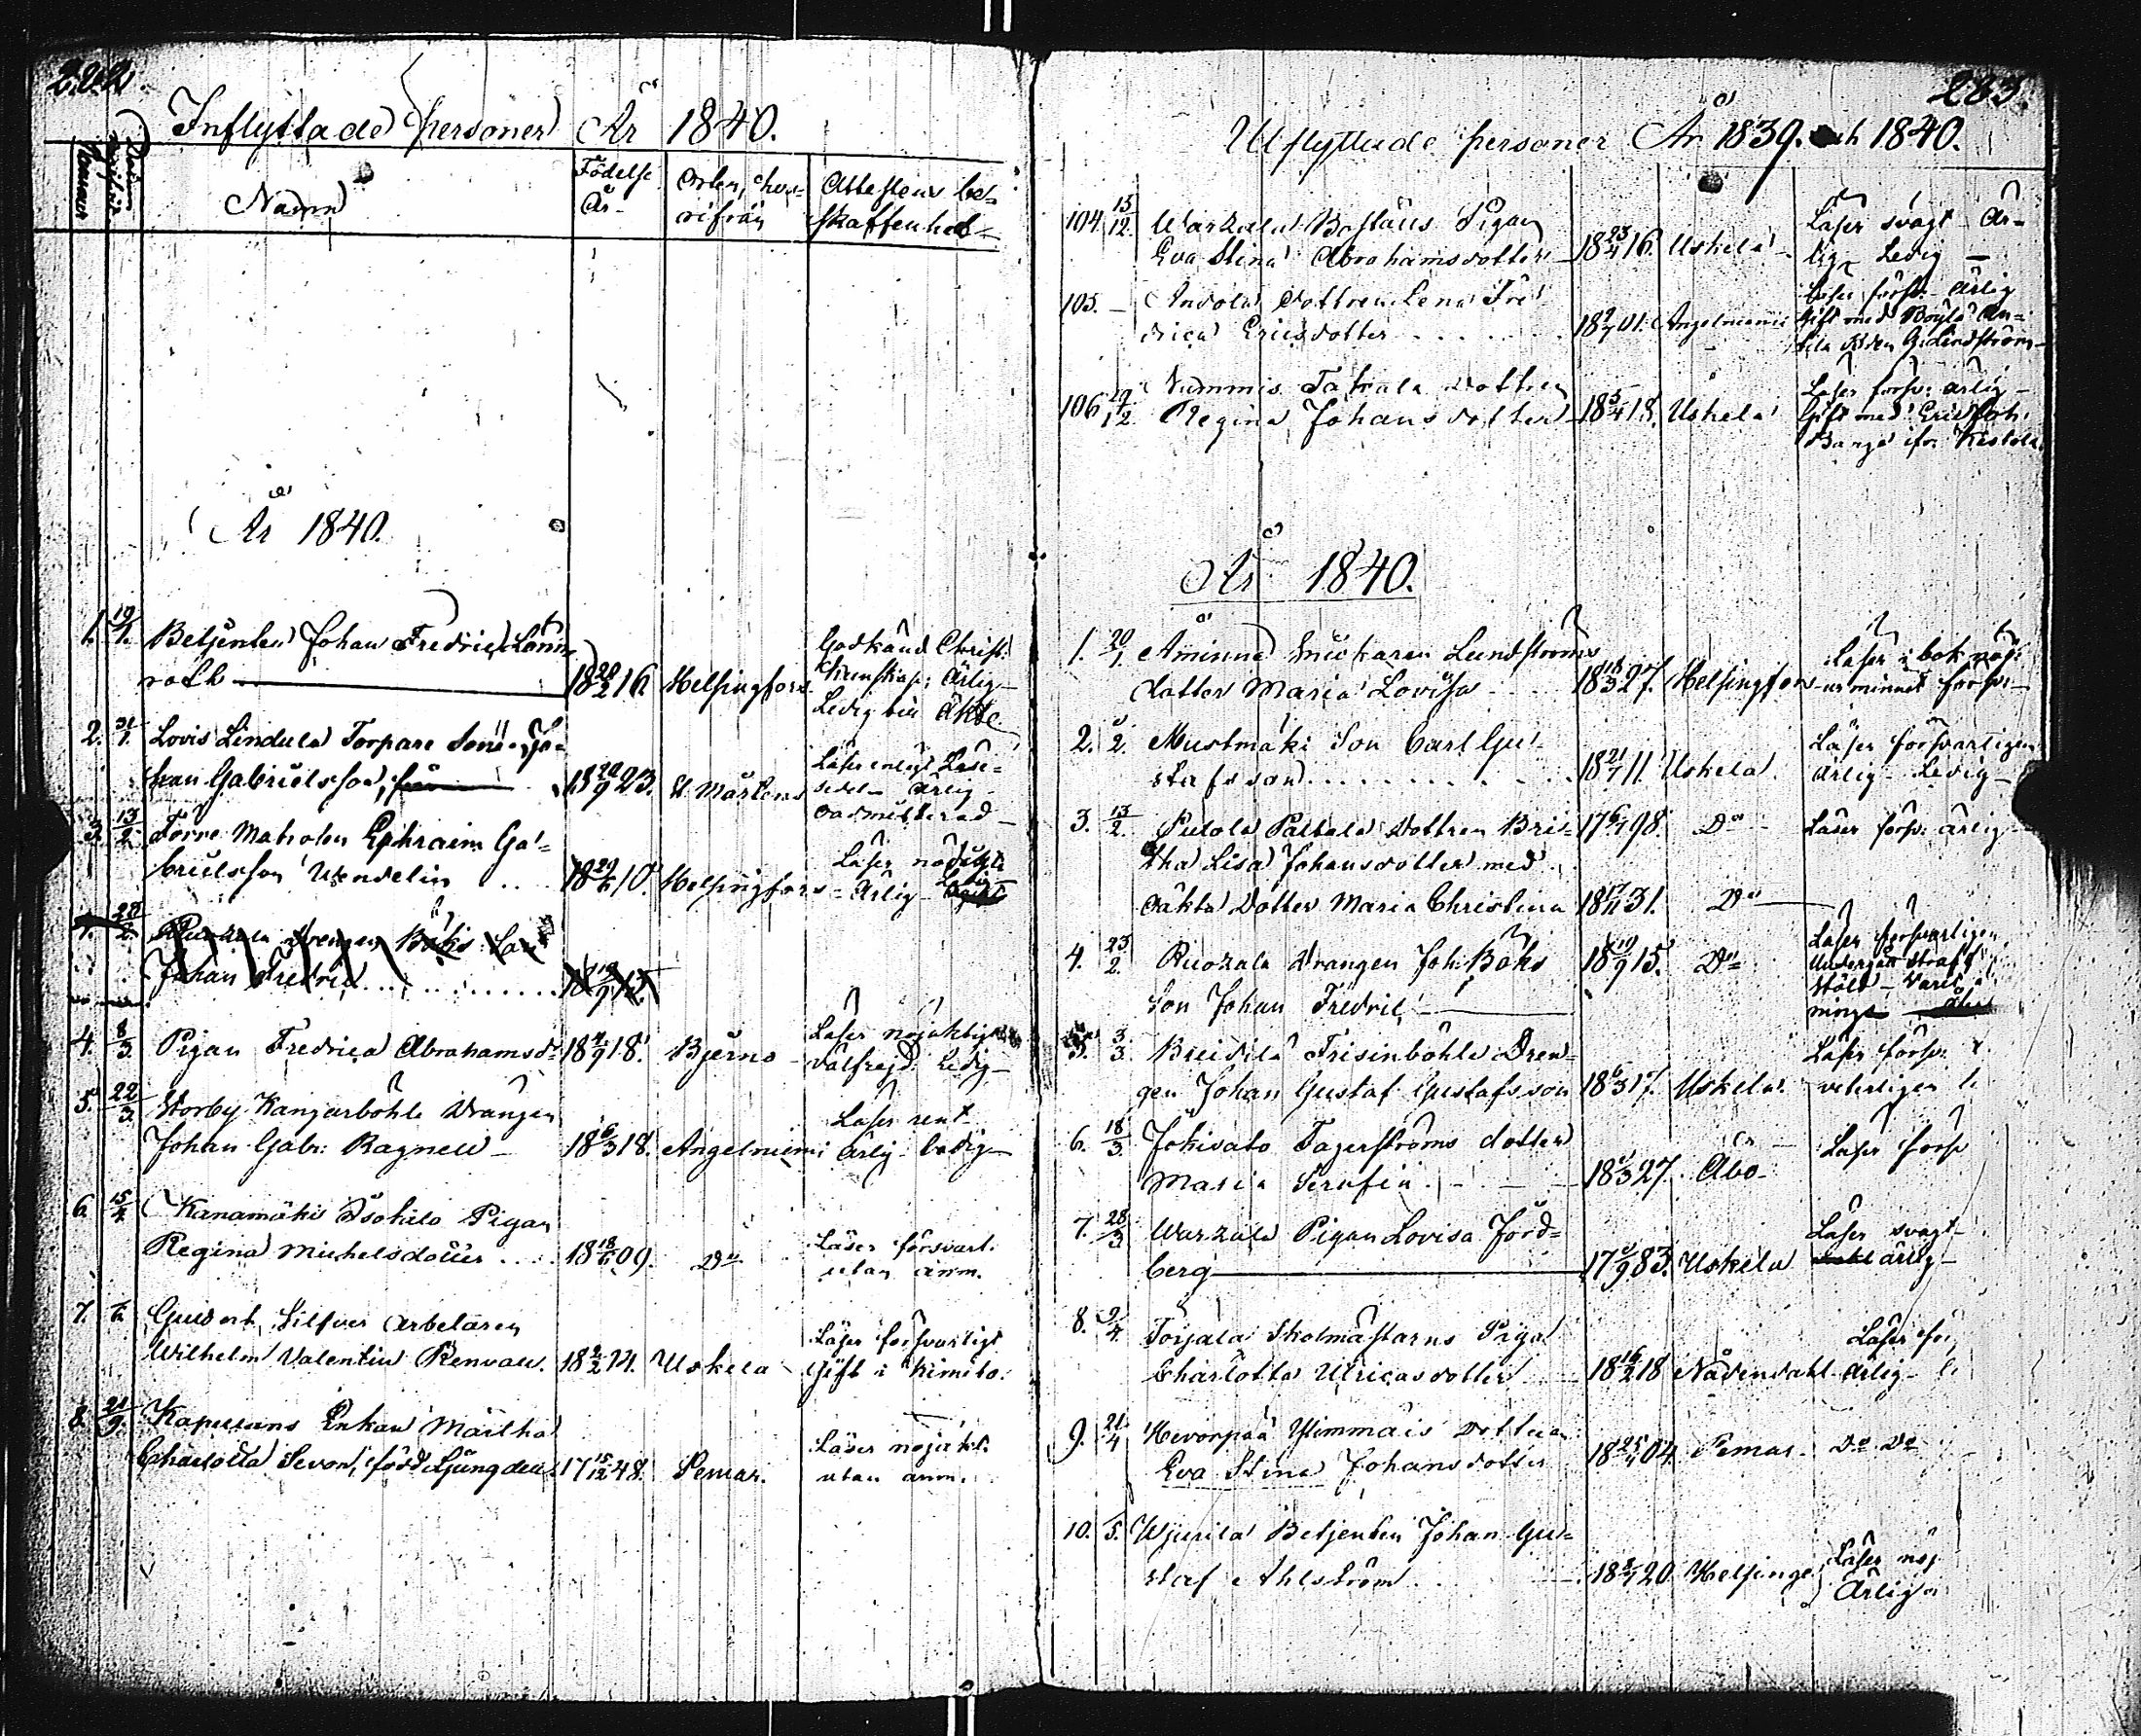 282.
Inflyttade personer År 1840.
Namn
Födelse År
Orten, hvarifrån
Attestens beskaffenhet
År 1840.
1. 19/1. Betjenten Johan Fredric Lönn-
roth 18 20/2 16. Helsingfors. Godkänd Christ: Kunskap; Ärlig Ledig till Äkte
2. 31/1. Lovis Lindula Torpare Sonen Jo-
han Gabrielsson, 18 20/9 23. St Mårtens Läser enligt Läse-
sedeln ärlig
oadmitterad
3. 13/2. Förre Matrosen Ephraim Ga-
brielsson Wendelin 18 29/6 10. Helsingfors Läser
Ärlig Ledig
28/2. Ruokala Drengen Böks Son
Johan Fredric 18 19/9 15.
4. 8/3. Pigan Fredrica Abrahamsd: 18 4/9 18. Bjerno Läser nöjaktigt
välfrejd: Ledig
5. 22/3. Storby Kangarböhle Drängen
Johan Gabr: Ragnell 18 6/3 18. Angelniemi Läser rent
ärlig ledig
6. 15/4 Kanamäki Isokilo Pigan
Regina Michelsdotter 18 18/6 09. Do Läser försvarl.
utan anm.
7. Silfver Arbetaren
Wilhelm Valentin Renvall. 18 2/2 14. Uskela Läser försvarligt
Gift i Kimito.
8. 21/9. Kapellans Enkan Märtha
Charlotta Sevon, född Ljungdell 17 15/12 48. Pemar. Läser nöjakt.
utan anm.
283.
Utflyttade personer År 1839. och 1840.
104. 15/12. Warkala Boställs Pigan
Eva Stina Abrahamsdotter 18 23/4 16. Uskela Läser svagt Är-
lig Ledig
105. Dottren Lena Fre-
drica Ericsdotter 18 9/7 01. Angelniemi Läser försv: Ärlig
Gift med
G: Lindström
106. Nummis Tatrala Dottren
Regina Johansdotter 18 5/4 18. Uskela Läser försv: ärlig
Gift med Eric
År 1840.
1. 20/1. Åminne Snickaren Lundströms
dotter Maria Lovisa 18 18/3 27. Helsingfors Läser i bok nöj:
ur minnet försv:
2. 2/2. Mustmäki Son Carl Gu-
stafsson 18 21/7 11. Uskela. Läser försvarligen
ärlig Ledig
3. 13/2. Paltala Dottren Bri-
tha Lisa Johansdotter med 17 6/4 98. Do Läser försv: ärlig
oäkta Dotter Maria Christina 18 17/11 31. Do
4. 23/2. Ruokala Drängen Joh: Böks
Son Johan Fredric 18 19/9 15. Do Läser försvarligen
Undergått straff
stöld
5. 3/3 Breidila Frisinböhle Dren-
gen Johan Gustaf Gustafsson 18 6/3 17. Uskela. Läser försv:
6. 18/3 Jokisato Fagerströms dotter
Maria Serafia 18 27. Åbo Läser försv
7. 28/3 Warkala Pigan Lovisa Jord-
berg 17 9/9 83. Uskela Läser svagt
ärlig
8. 9/4 Torjala Skolmästarns Piga
Charlotta Ulricasdotter 18 16/2 18 Nådendahl Läser
Ärlig
9. 21/4 Dottren
Eva Stina Johansdotter 18 25/4 04 Pemar Do Do
10. 5. Wjurila Betjenten Johan Gu-
staf Ahlström 18 20. Helsinge Läser nöj
Ärlig